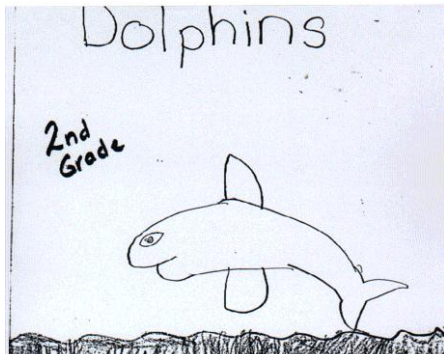 Dolphins
2nd
Grade